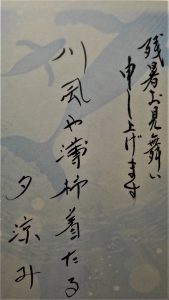 残暑お見舞い
申し上げます
川風や薄柿着たる
夕涼み